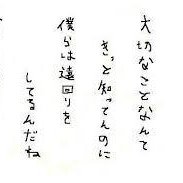 大切なことなんて
きっと知ってんのに
僕らは遠回りを
してるんだね